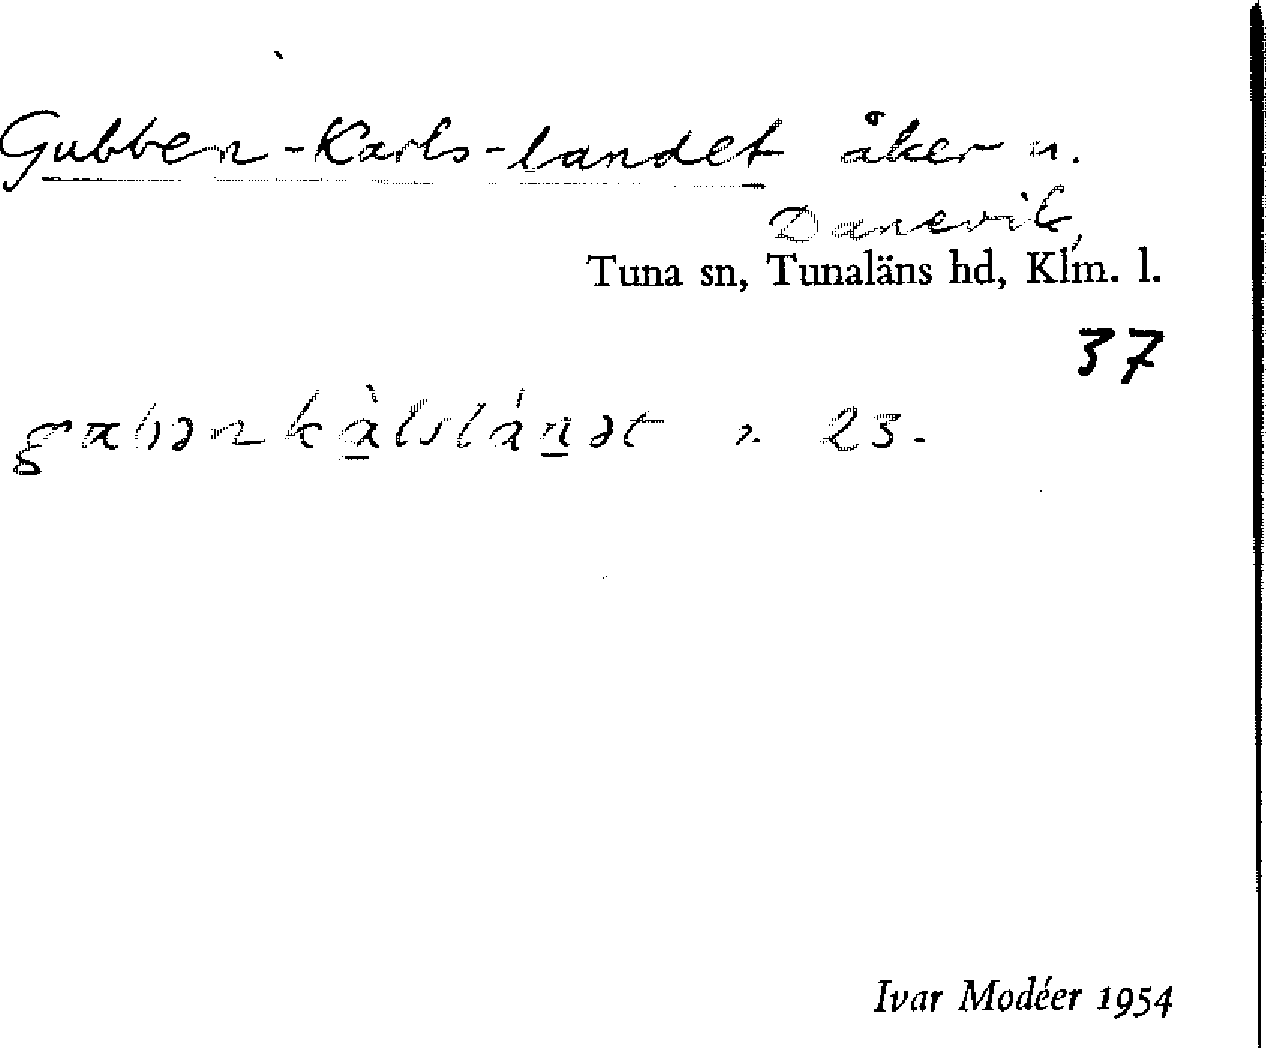 Gubben-Karls-landet åker u.
Danevik,
Tuna sn, Tunaläns hd, Klm. l.
37
23.
Ivar Modéer 1954